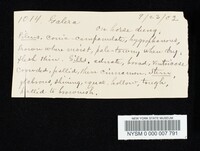 1014 Galera 8/02/02
On horse dung.
Pileus conic-campanulate, hygrophanous,
brown when moist, pale tawny when dry,
flesh thin. Gills, adnate, broad, ventricose,
crowded, pallid then cinnamon. Stem,
, shining, hollow, tough,
pallid to brownish.
NEW YORK STATE MUSEUM
NYSM 0 000 007 791